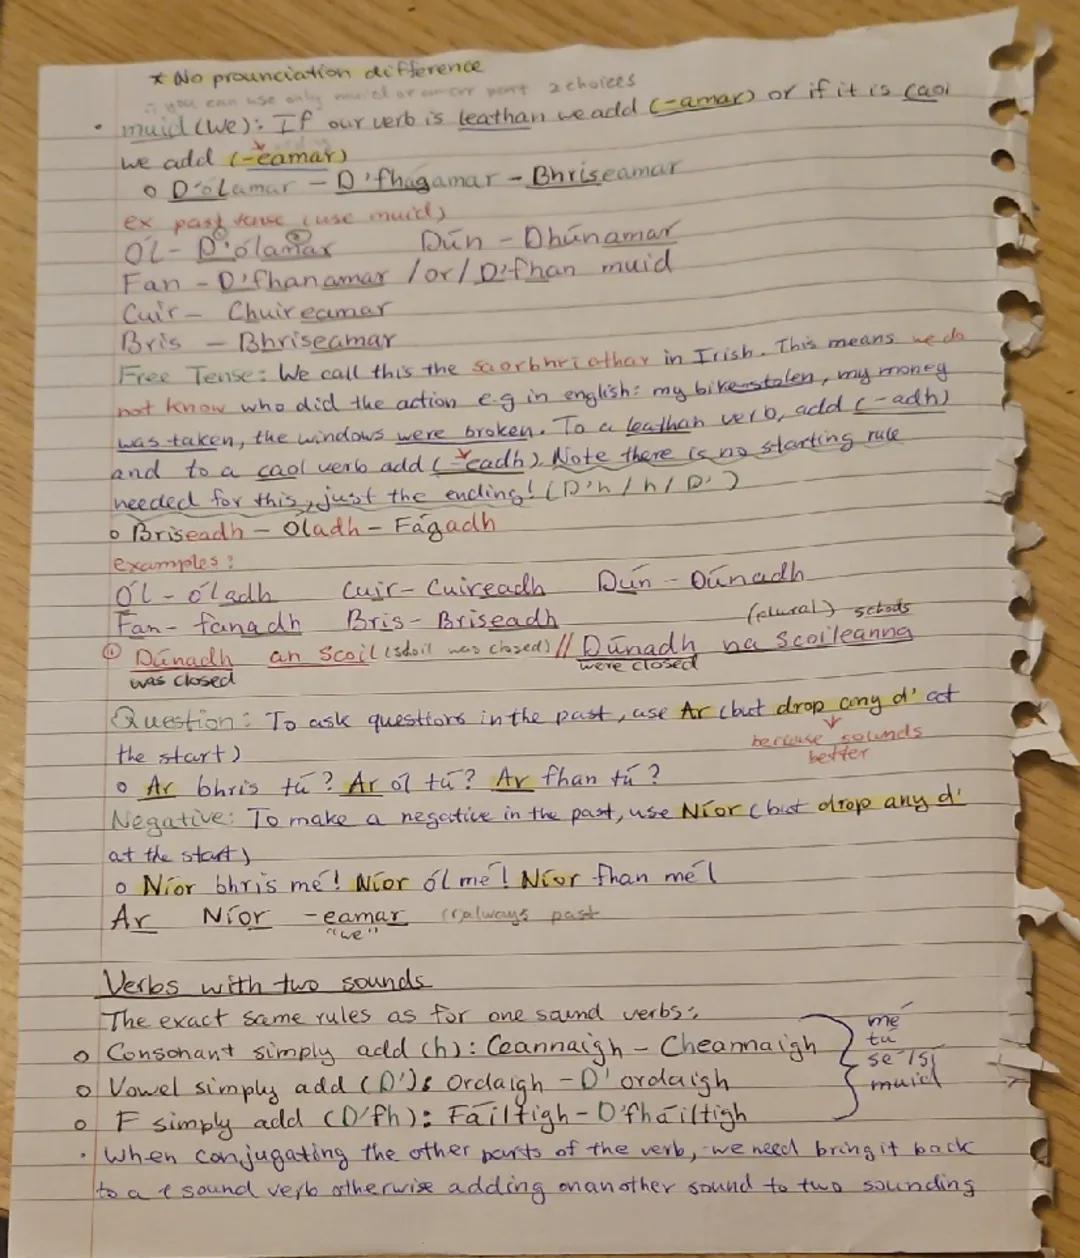 * No prounciation difference
∴ you can use only muid or amar part 2 choices
• muid (we): If our verb is leathan we add (-amar) or if it is caol
we add (-eamar)
o D'ólamar - D'fhágamar - Bhriseamar
ex past tense (use muid)
Ól - D'ólamar Dún - Dhúnamar
Fan - D'fhanamar /or/ D'fhan muid
Cuir - Chuireamar
Bris - Bhriseamar
Free Tense: We call this the saorbhriathar in Irish. This means we do
not know who did the action e.g in english: my bike stolen, my money
was taken, the windows were broken. To a leathan verb, add (-adh)
and to a caol verb add (-eadh). Note there is no starting rule
needed for this, just the ending! (D'h / h / D')
o Briseadh - Óladh - Fágadh
examples:
Ól - óladh Cuir - Cuireadh Dún - Dúnadh
Fan - fanadh Bris - Briseadh (plural)
① Dúnadh an Scoil (was closed) // Dúnadh na Scoileanna
was closed were closed
Question: To ask questions in the past, use Ar (but drop any d' at
the start) because sounds
better
o Ar bhris tú? Ar ól tú? Ar fhan tú?
Negative: To make a negative in the past, use Níor (but drop any d'
at the start)
o Níor bhris mé! Níor ól mé! Níor fhan mé!
Ar Níor -eamar always past
"we"
Verbs with two sounds
The exact same rules as for one sound verbs:
o Consonant simply add (h): Ceannaigh - Cheannaigh
o Vowel simply add (D'): Ordaigh - D'ordaigh
o F simply add (D'fh): Fáiltigh - D'fháiltigh
mé
tú
sé/sí
muid
• When conjugating the other parts of the verb, we need bring it back
to a 1 sound verb otherwise adding on another sound to two sounding